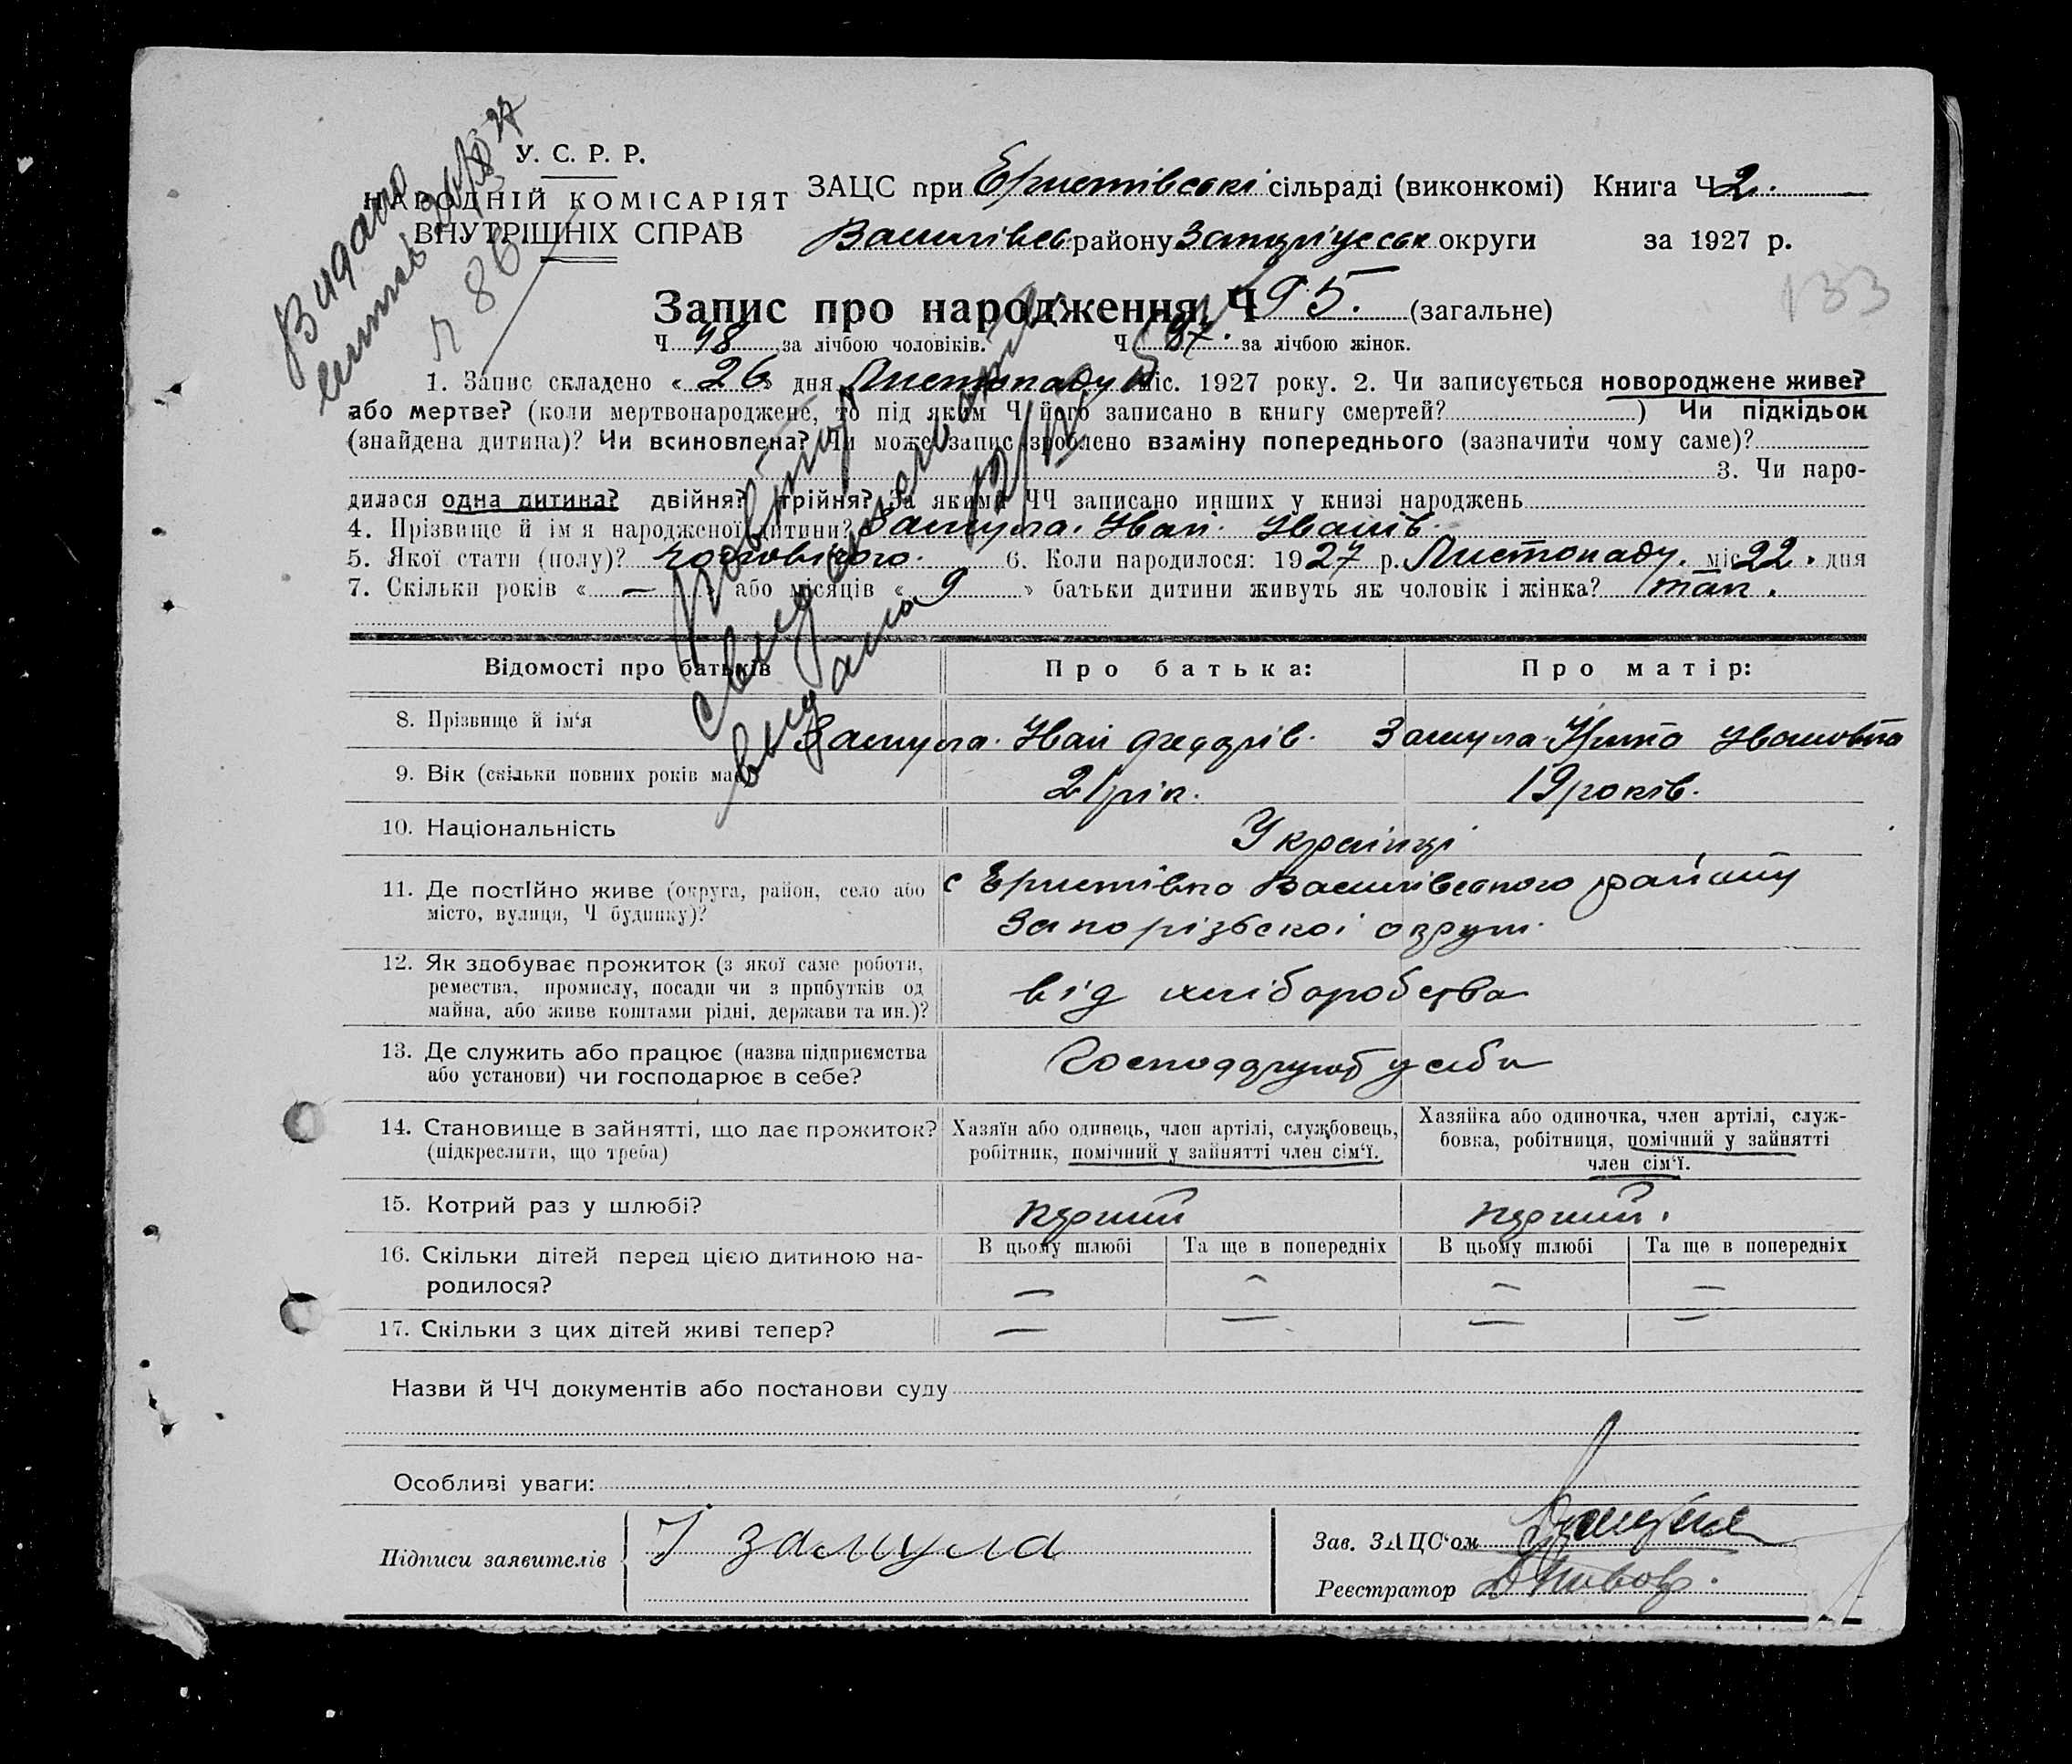 У. С. Р. Р.
НАРОДНІЙ КОМІСАРІЯТ
ВНУТРІШНІХ СПРАВ
Видано
ЗАЦС при Еристівські сільраді (виконкомі) Книга Ч 2.
Василівсь району Запоріжськ округи за 1927 р.
133
Запис про народження Ч 95. (загальне)
Ч 48 за лічбою чоловіків. Ч 97. за лічбою жінок.
1. Запис складено « 26 » дня Листопаду міс. 1927 року. 2. Чи записується новороджене живе?
або мертве? (коли мертвонароджене, то під яким Ч його записано в книгу смертей? ) Чи підкідьок
(знайдена дитина)? Чи всиновлена? Чи може запис зроблено взаміну попереднього (зазначити чому саме)?
3. Чи наро-
дилася одна дитина? двійня? трійня? За якими ЧЧ записано инших у книзі народжень
4. Прізвище й ім я народженої дитини? Замула. Иван. Иванів.
5. Якої стати (полу)? чоловічого. 6. Коли народилося: 1927 р. Листопаду. міс 22. дня
7. Скільки років « — » або місяців « 9 » батьки дитини живуть як чоловік і жінка? так.
Повторне
свид
видана
Відомості про батьків Про батька: Про матір:
8. Прізвище й ім‘я Замула. Иван Федорів. Замула Ивановна
9. Вік (скільки повних років має) 21 рік. 19 років.
10. Національність Українці
11. Де постійно живе (округа, район, село або с Еристівка Василівського району
місто, вулиця, Ч будинку)? Запорізьскоі округи.
12. Як здобуває прожиток (з якої саме роботи,
ремества, промислу, посади чи з прибутків од від хліборобства
майна, або живе коштами рідні, держави та ин.)?
13. Де служить або працює (назва підприємства
або установи) чи господарює в себе? у себе
14. Становище в зайнятті, що дає прожиток? Хазяїн або одинець, член артілі, службовець, Хазяйка або одиночка, член артілі, служ-
(підкреслити, що треба) робітник, помічний у зайнятті член сім‘ї. бовка, робітниця, помічний у зайнятті
член сім‘ї.
15. Котрий раз у шлюбі? перший перший.
16. Скільки дітей перед цією дитиною на- В цьому шлюбі Та ще в попередніх В цьому шлюбі Та ще в попередніх
родилося? — — — —
17. Скільки з цих дітей живі тепер? — — — —
Назви й ЧЧ документів або постанови суду
Особливі уваги:
Підписи заявителів І замула
Зав. ЗАЦС‘ом
Реєстратор